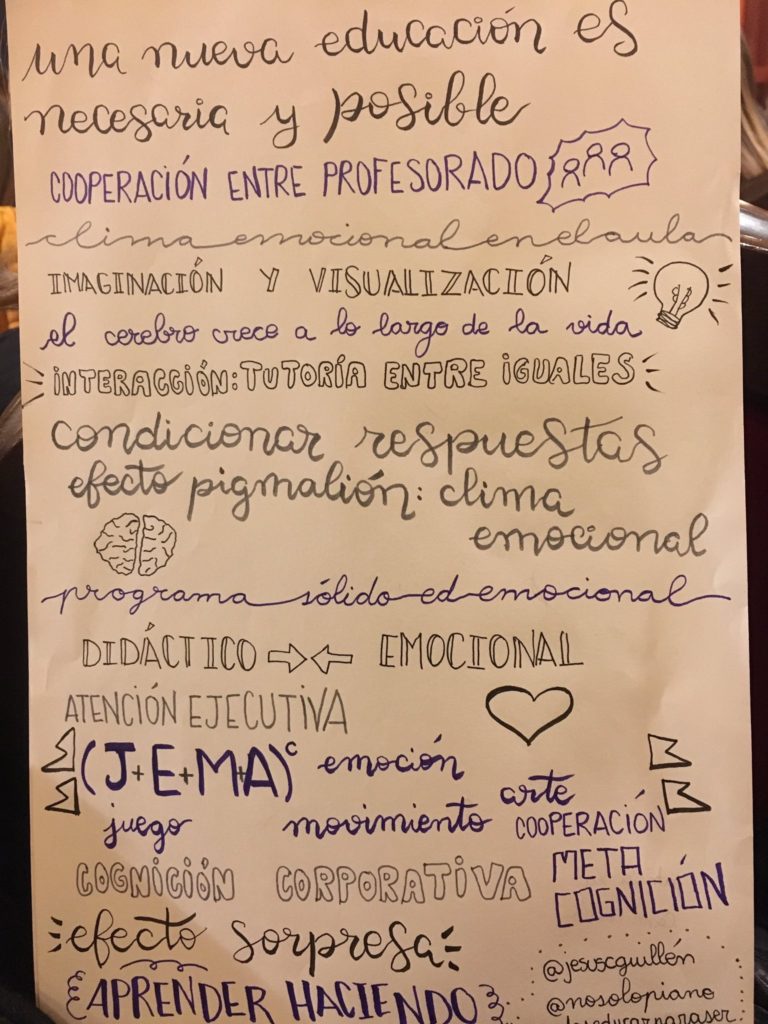 una nueva educación es
necesaria y posible
COOPERACIÓN ENTRE PROFESORADO
clima emocional en el aula
IMAGINACIÓN Y VISUALIZACIÓN
el cerebro crece a lo largo de la vida
INTERACCIÓN: TUTORÍA ENTRE IGUALES
condicionar respuestas
efecto pigmalión: clima
emocional
programa sólido ed emocional
DIDÁCTICO EMOCIONAL
ATENCIÓN EJECUTIVA
(J+E+M+A)ᶜ emoción
juego movimiento arte COOPERACIÓN
COGNICIÓN CORPORATIVA META
COGNICIÓN
efecto sorpresa
APRENDER HACIENDO
@jesuscguillén
@nosolopiano